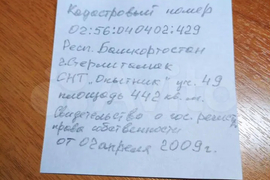 Кадастровый номер
02:56:040402:429
Респ. Башкортостан
г.Стерлитамак
СНТ „Опытник" уч. 49
площадь 442 кв. м.
Свидетельство о гос. регистр
права собственности
от 02 апреля 2009г.